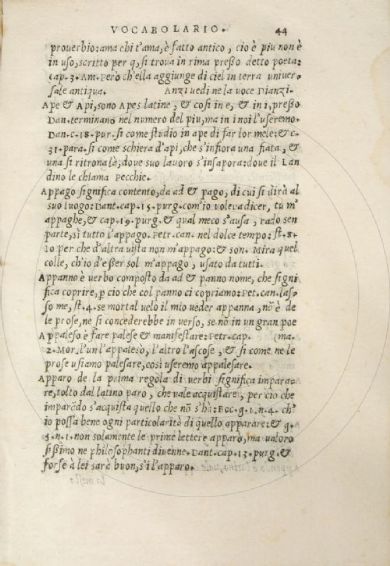 VOCABOLARIO. 44
prouerbio: ama chi t'ama, è fatto antico, cio è piu non è
in uso, scritto per q, si troua in rima presso detto poeta:
cap. 3. Am. vero ch'ella aggiunge di ciel in terra uniuer
sale antiqua. Anzi uedi ne la uoce Dianzi.
Ape & Api, sono Apes latine, & cosi in e, & in i, presso
Dan. terminano nel numero del piu, ma in noi l'useremo.
Dan. c. 18. pur. si come studio in ape di far lor mele: & c.
31. para. si come schiera d'api, che s'infiora una fiata, &
una si ritrona là, doue suo lauoro s'insapora: doue il Lan
dino le chiama pecchie.
Appago significa contento, da ad & pago, di cui si dirà al
suo luogo: Dant. cap. 15. purg. com'io voleua dicer, tu m'
appaghe, & cap. 19. purg. & qual meco s'ausa, rado sen
parte, sì tutto l'appago. Petr. can. nel dolce tempo: st. 8.
Io per che d'altra uista non m'appago: & son. Mira quel
colle, ch'io d'esser sol m'appago, usato da tutti.
Appanno è uerbo composto da ad & panno nome, che signi
fica coprire, p cio che col panno ci copriamo: Pet. can. las
so me, st. 4. se mortal uelo il mio ueder appanna, nō è de
le prose, ne si concederebbe in verso, se nō in un gran poe
Appaleso è fare palese & manifestare: Petr. cap. (ma.
2. Mor. l'un l'appalesò, l'altro l'ascose, & si come ne le
prose usiamo palesare, cosi useremo appalesare.
Apparo de la prima regola di uerbi significa imparare
re, tolto dal latino paro, che vale acquistare, per cio che
imparēdo s'acquista quello che nō s'hà: Boc. g. 1. n. 4. ch'
io possa bene ogni particolarità di quello apparare: & g.
5. n. 1. non solamente le prime lettere apparò, ma ualoro
sissimo ne philosophanti diuenne. Dant. cap. 13. purg. &
forse à lei sarà buon, s'i l'apparo.